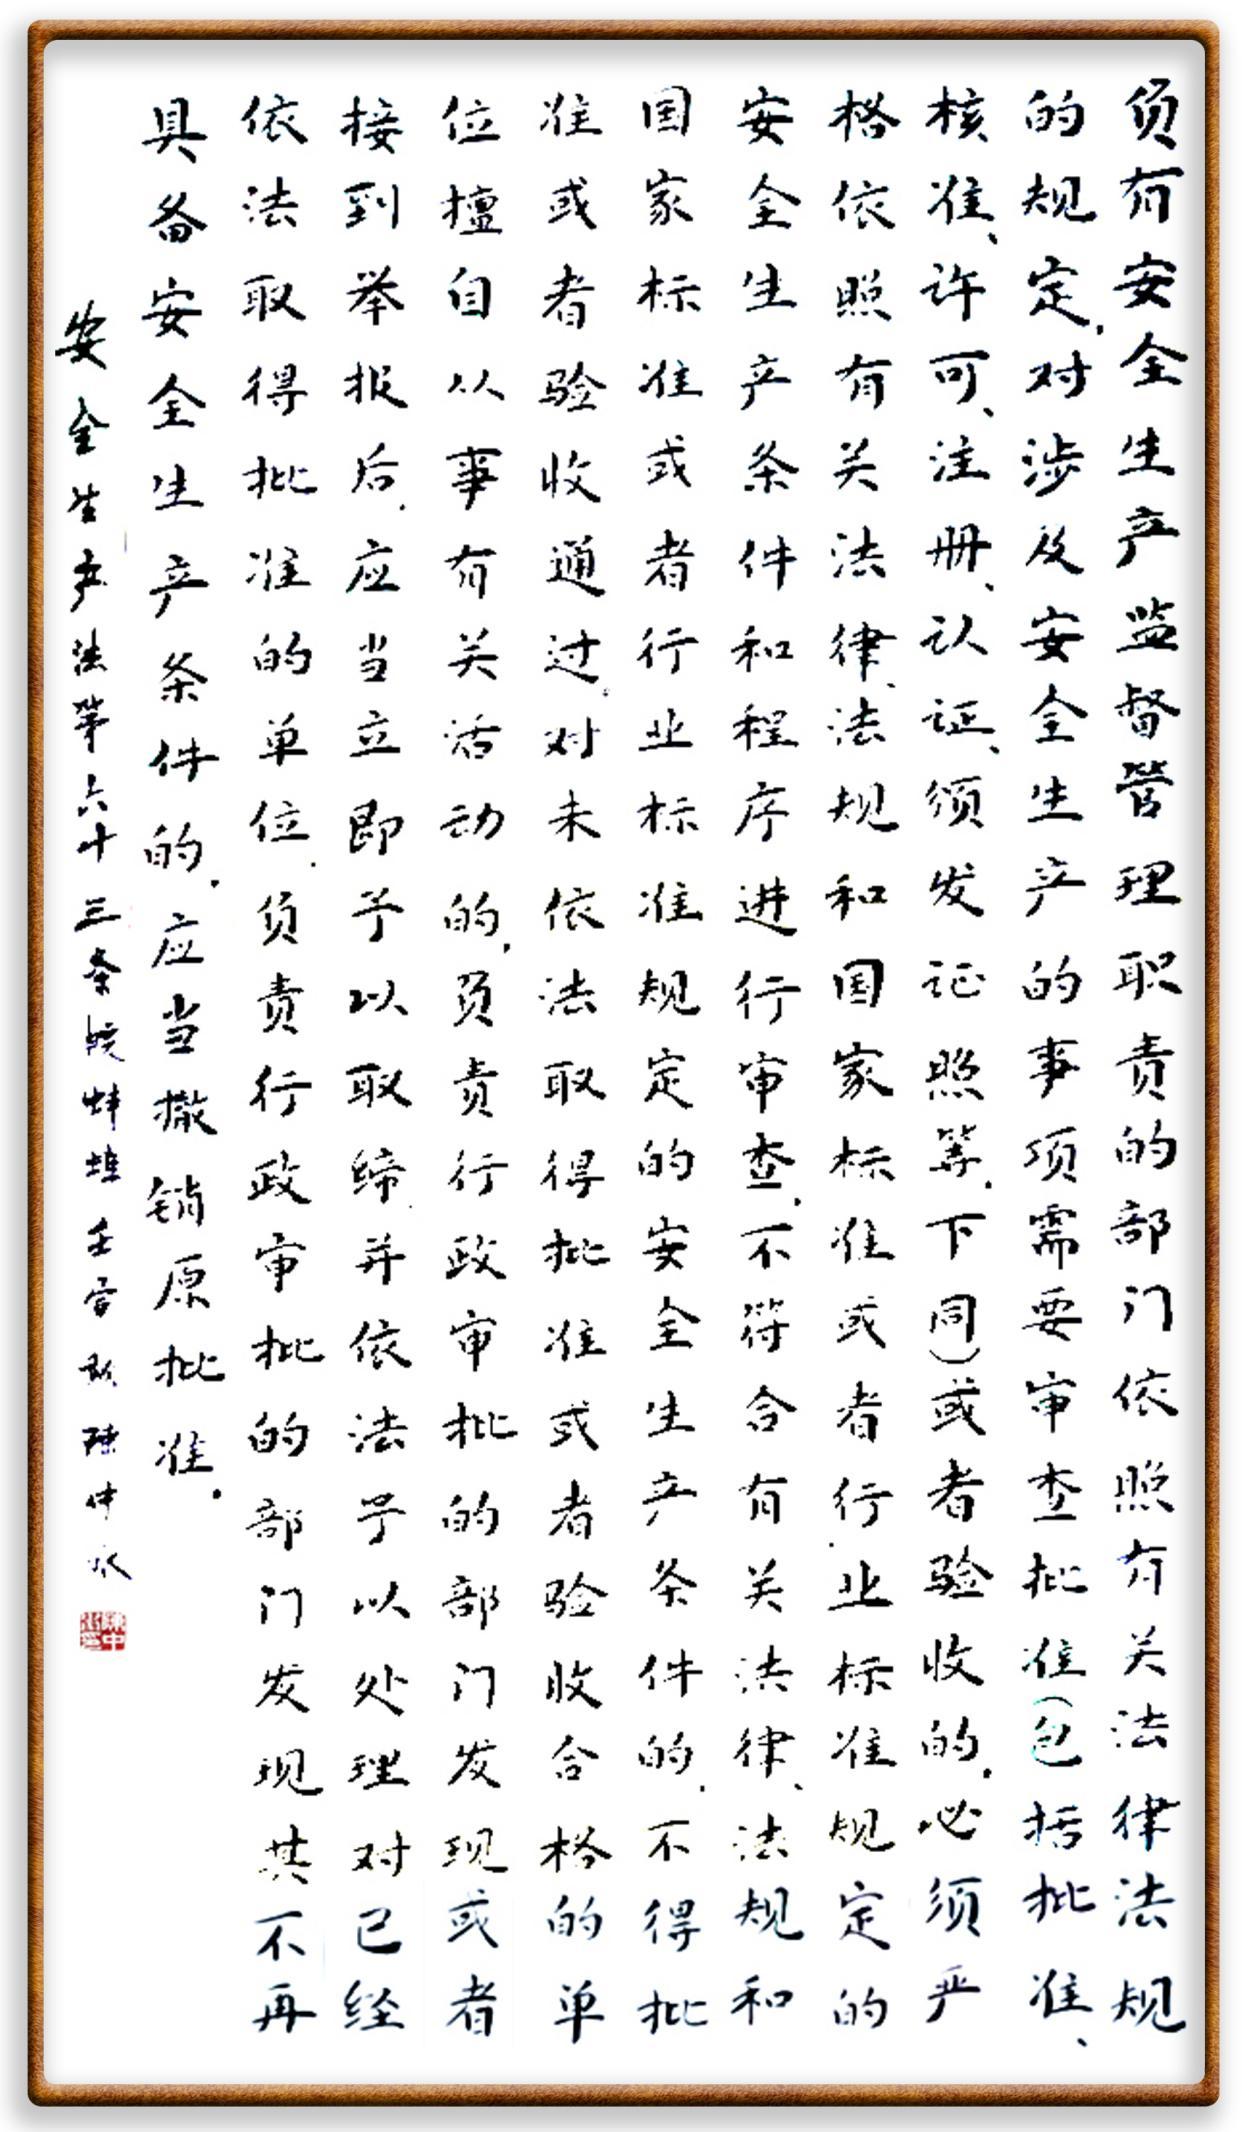 负有安全生产监督管理职责的部门依照有关法律法规
的规定，对涉及安全生产的事项需要审查批准（包括批准、
核准、许可、注册、认证、颁发证照等，下同）或者验收的，必须严
格依照有关法律、法规和国家标准或者行业标准规定的
安全生产条件和程序进行审查，不符合有关法律、法规和
国家标准或者行业标准规定的安全生产条件的，不得批
准或者验收通过。对未依法取得批准或者验收合格的单
位擅自从事有关活动的，负责行政审批的部门发现或者
接到举报后，应当立即予以取缔，并依法予以处理对已经
依法取得批准的单位，负责行政审批的部门发现其不再
具备安全生产条件的，应当撤销原批准。
安全生产法第六十三条皖蚌埠壬寅秋陈仲永